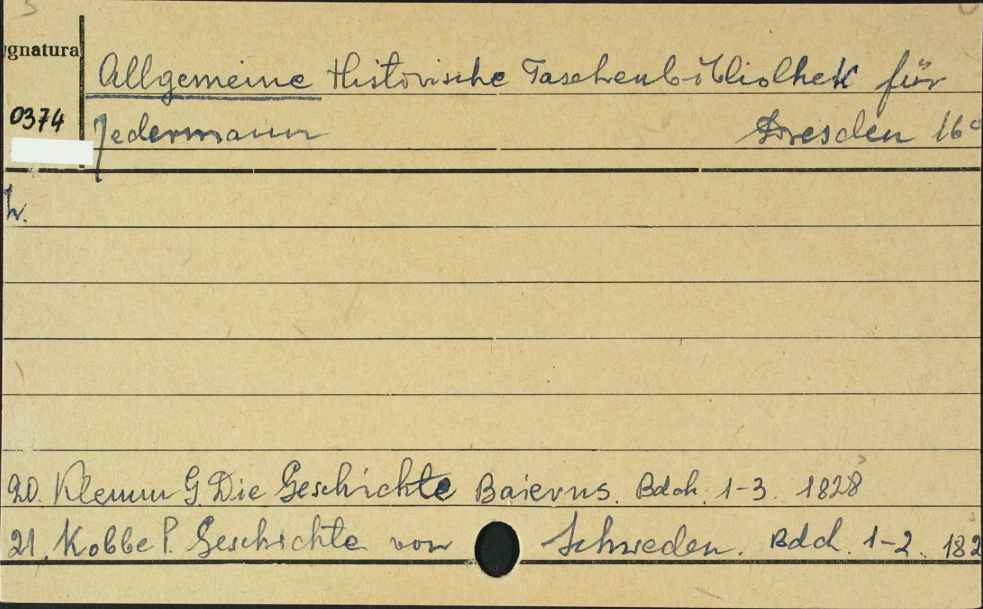 gnatura
Allgemeine Historische Taschenbibliothek für
0374
Jedermann Dresden 16°
20. Klemm G. Die Geschichte Baierns. Bdch. 1-3. 1828
21. Kobbe P. Geschichte von Schweden. Bdch. 1-2. 182